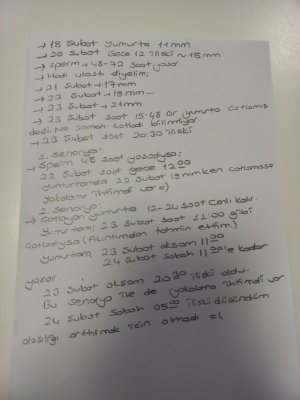 → 18 Şubat yumurta 11mm
→ 20 Şubat Gece 12 ilişki ~ 15mm
→ Sperm → 48-72 saat yaşar
→ Hadi ulaştı diyelim;
→ 21 Şubat → 17mm
→ 22 Şubat → 19mm
→ 23 Şubat → 21mm
→ 23 Şubat saat 15:45 Dr yumurta çatlamış
dedi. Ne zaman çatladı bilinmiyor
→ 23 Şubat saat 20:30 ilişki
1. Senaryo:
→ Sperm 48 saat yaşadıysa;
22 Şubat saat gece 12:00
yumurtamda 22 Şubat 19mm ken çatlamışsa
yakalama ihtimali var =)
2. Senaryo:
→ Çatlayan yumurta 12-24 saat canlı kalır.
yumurtam; 23 Şubat saat 11:00 gibi
çatladıysa (Akıntımdan tahmin ettim.)
yumurtam 23 Şubat akşam 11:00
24 Şubat sabah 11:00'e kadar
yaşar.
23 Şubat akşam 20:30 ilişki oldu.
Bu senaryo ile de yakalama ihtimali var
24 Şubat sabah 05:00 ilişki düşündüm
olasılığı arttırmak için olmadı =(